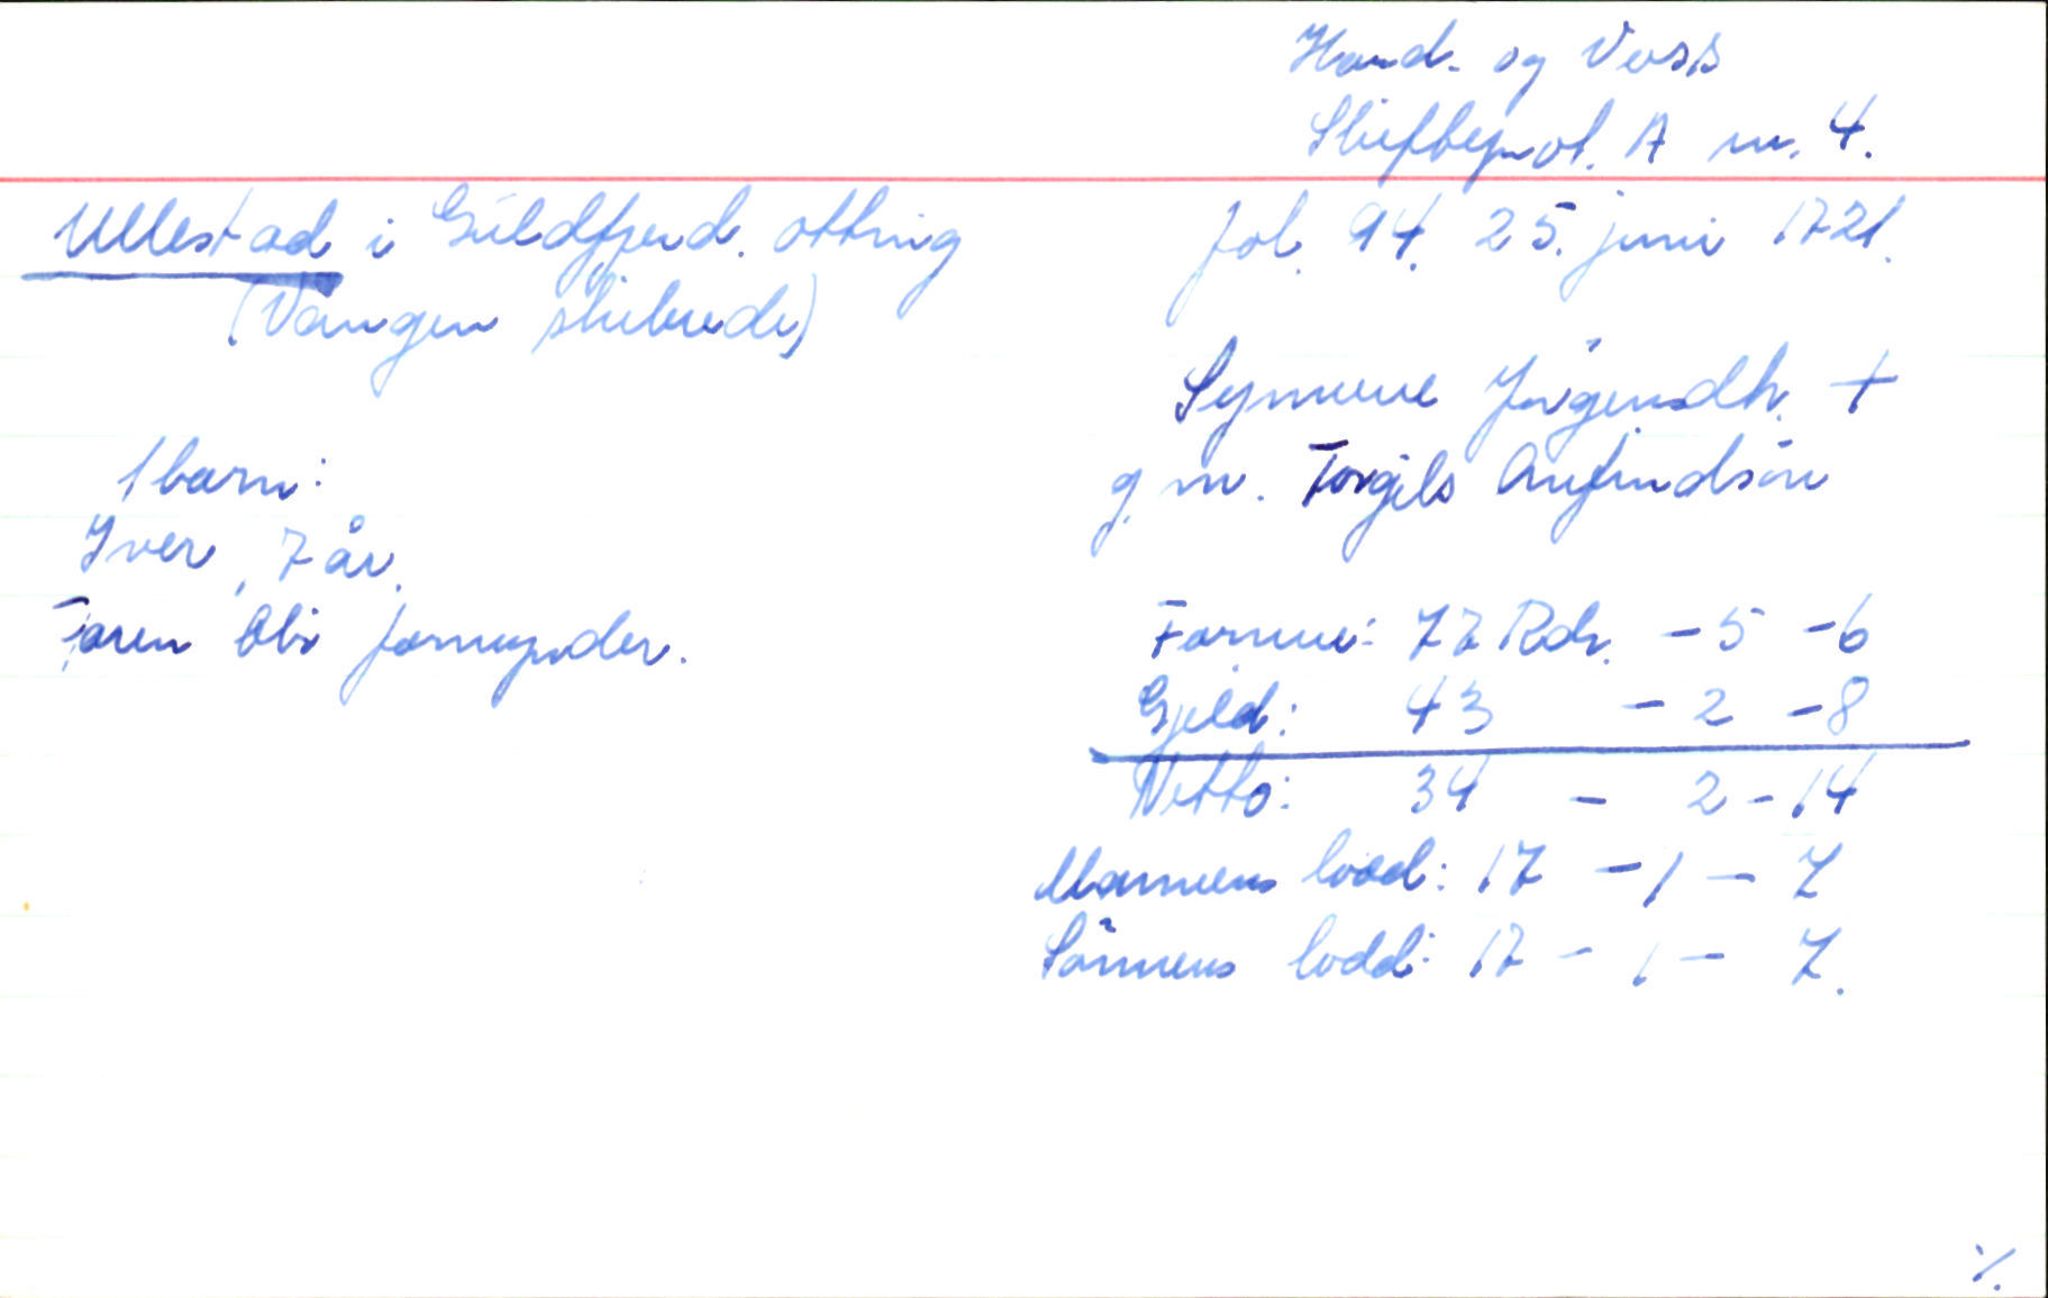 Hard. og Voss
Skifteprot. A nr. 4.
Ullestad i Guldfjerd. otting
fol. 94. 25. juni 1721.
(Vangen skibrede)
Synneve Jørgensdh. +
g. m. Torgils Anfindsön
1 barn:
Iver, 7 år.
Faren blir formynder.
Formue: 77 Rdr. - 5 - 6
Gjeld: 43 - 2 - 8
Netto: 34 - 2 - 14
Mannens lodd: 17 - 1 - 7
Sönnens lodd: 17 - 1 - 7.